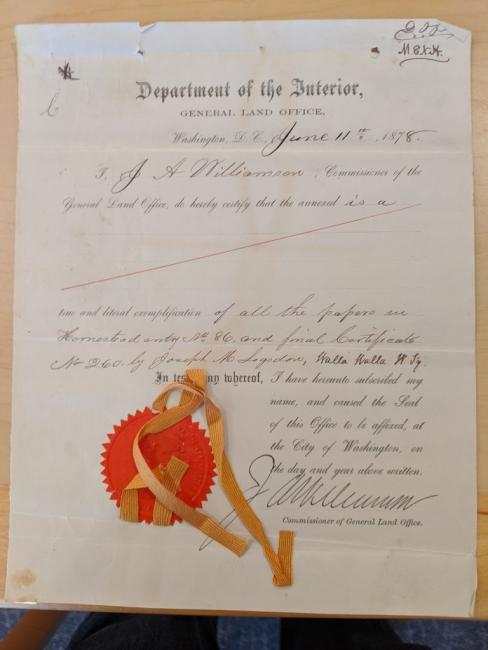 M.E.H.
Department of the Interior,
GENERAL LAND OFFICE,
Washington, D. C., June 11th, 1878.
I, J A Williamson, Commissioner of the
General Land Office, do hereby certify that the annexed is a
true and literal exemplification of all the papers in
Homestead entry No 86. and final Certificate
No 260. by Joseph M Logsdon, Walla Walla W Ty.
In tes ny whereof, I have hereunto subscribed my
name, and caused the Seal
of this Office to be affixed, at
the City of Washington, on
the day and year above written.
J A Williamson
Commissioner of General Land Office.